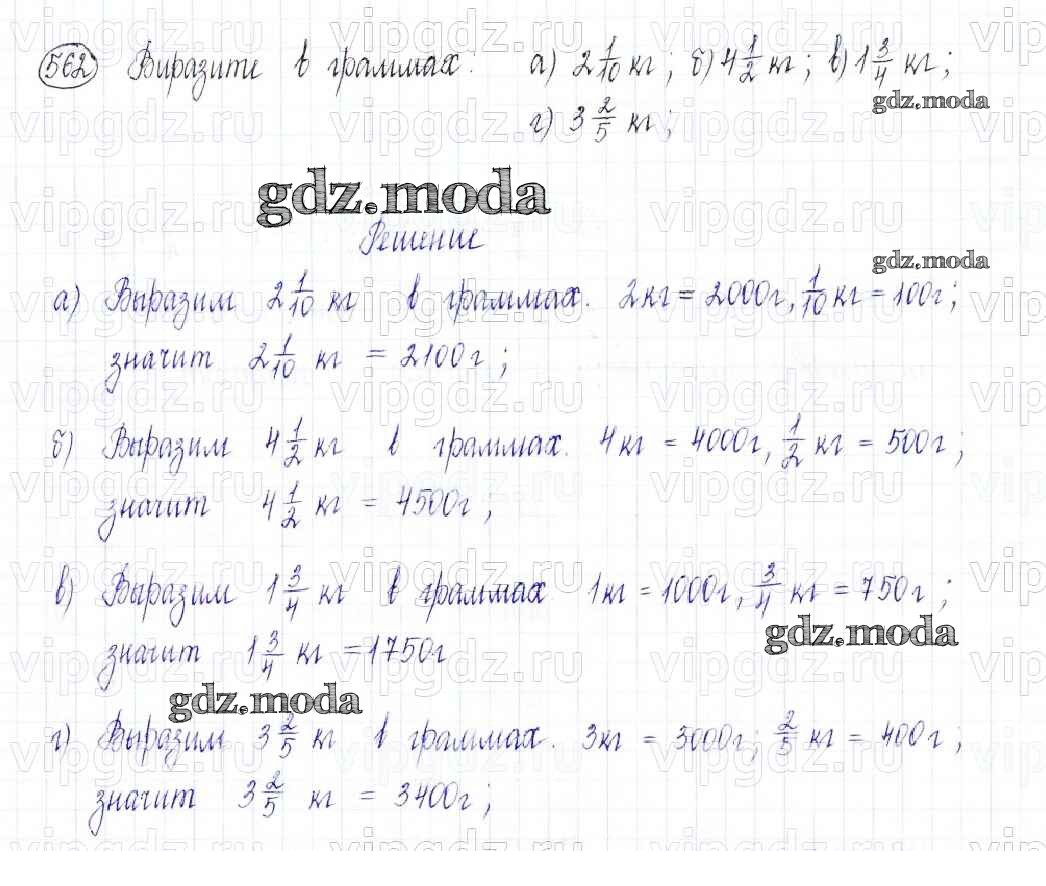 562 Выразите в граммах: а) 2 1/10 кг; б) 4 1/2 кг; в) 1 3/4 кг;
gdz.moda
г) 3 2/5 кг;
gdz.moda
Решение
gdz.moda
а) Выразим 2 1/10 кг в граммах. 2кг = 2000г, 1/10 кг = 100г;
значит 2 1/10 кг = 2100г;
б) Выразим 4 1/2 кг в граммах. 4кг = 4000г, 1/2 кг = 500г;
значит 4 1/2 кг = 4500г;
в) Выразим 1 3/4 кг в граммах 1кг = 1000г, 3/4 кг = 750г;
gdz.moda
значит 1 3/4 кг = 1750г
gdz.moda
г) Выразим 3 2/5 кг в граммах. 3кг = 3000г; 2/5 кг = 400г;
значит 3 2/5 кг = 3400г;
vipgdz.ru